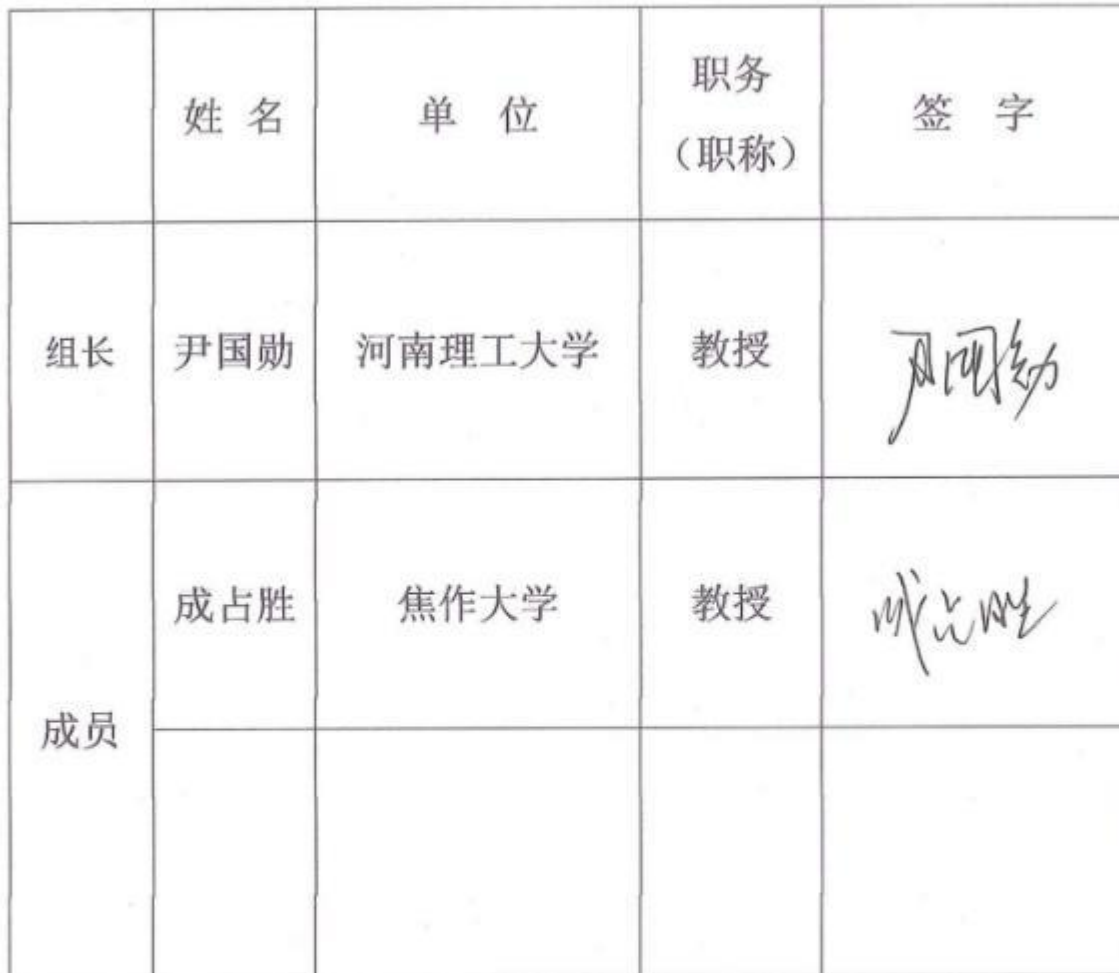 姓 名 单 位 职务 签 字
（职称）
组长 尹国勋 河南理工大学 教授 尹国勋
成占胜 焦作大学 教授 成占胜
成员